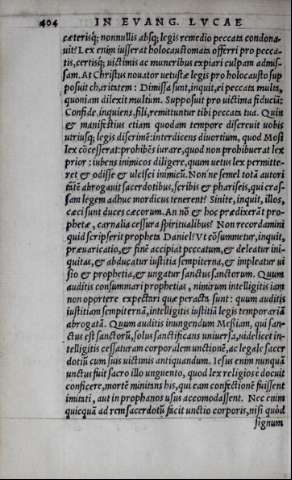 404 IN EVANG. LVCAE
cæterisq; nonnullis absq; legis remedio peccata condona-
uit? Lex enim iusserat holocaustomata offerri pro pecca-
tis, certisq; uictimis ac muneribus expiari culpam admis-
sam. At Christus nouator uetustæ legis pro holocausto sup
posuit charitatem: Dimissa sunt, inquit, ei peccata multa,
quoniam dilexit multum. Supposuit pro uictima fiduciā:
Confide, inquiens, fili, remittuntur tibi peccata tua. Quin
& manifestius etiam quodam tempore disseruit uobis
utriusq; legis discrimē: interdicens diuortium, quod Mosi
lex cōcesserat: prohibēs iurare, quod non prohibuerat lex
prior: iubens inimicos diligere, quum uetus lex permitte-
ret & odisse & ulcisci inimicū. Nōn'ne semel totā autori
tatē abrogauit sacerdotibus, scribis & phariseis, qui cras-
sam legem adhuc mordicus tenerent? Sinite, inquit, illos,
cæci sunt duces cæcorum. An nō & hoc prædixerāt pro-
phetæ, carnalia cessura spiritualibus? Non recordamini
quid scripserit propheta Daniel? Vt cōsummetur, inquit,
præuaricatio, & finē accipiat peccatum, & deleatur ini-
quitas, & adducatur iustitia sempiterna, & impleatur ui
sio & prophetia, & ungatur sanctus sanctorum. Quum
auditis consummari prophetias, nimirum intelligitis iam
non oportere expectari quæ peracta sunt: quum auditis
iustitiam sempiternā, intelligitis iustitiā legis temporariā
abrogatā. Quum auditis inungendum Messiam, qui san-
ctus est sanctorū, solus sanctificans uniuersa, uidelicet in-
telligitis cessaturam corporalem unctionē, ac legale sacer
dotiū cum suis uictimis antiquandum. Iesus enim nunquā
unctus fuit sacro illo unguento, quod lex religiose docuit
conficere, mortē minitans his, qui eam confectionē fuissent
imitati, aut in prophanos usus accomodassent. Nec enim
quicquā ad rem sacerdotū facit unctio corporis, nisi quòd
signum